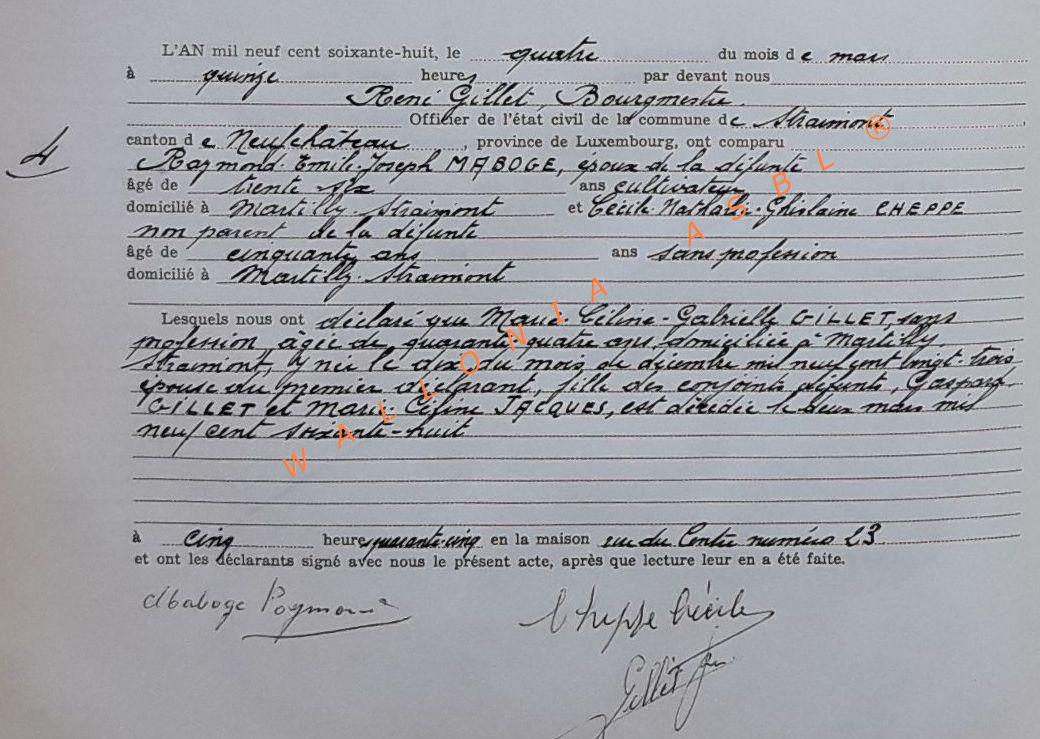 L'AN mil neuf cent soixante-huit, le quatre du mois de mars
à quinze heures par devant nous
René Gillet, Bourgmestre.
Officier de l'état civil de la commune de Straimont,
4
canton de Neufchâteau, province de Luxembourg, ont comparu
Raymond-Emile-Joseph MABOGE, époux de la défunte
âgé de trente six ans cultivateur
domicilié à Martilly-Straimont et Cécile-Nathalie-Ghislaine CHEPPE
non parent de la défunte
âgé de cinquante ans ans sans profession
domicilié à Martilly-Straimont
Lesquels nous ont déclaré que Marie-Céline-Gabrielle GILLET, sans
profession, âgée de quarante-quatre ans, domiciliée à Martilly-
Straimont, y née le du mois de décembre mil neuf cent vingt-trois
épouse du premier déclarant, fille des conjoints défunts, Gaspard
GILLET et Marie-Céline JACQUES, est décédée le deux mars mil
neuf cent soixante-huit
à cinq heures quarante-cinq en la maison rue du Centre numéro 23
et ont les déclarants signé avec nous le présent acte, après que lecture leur en a été faite.
Maboge Raymond
Cheppe Cécile
Gillet
WALLONIA ASBL ®